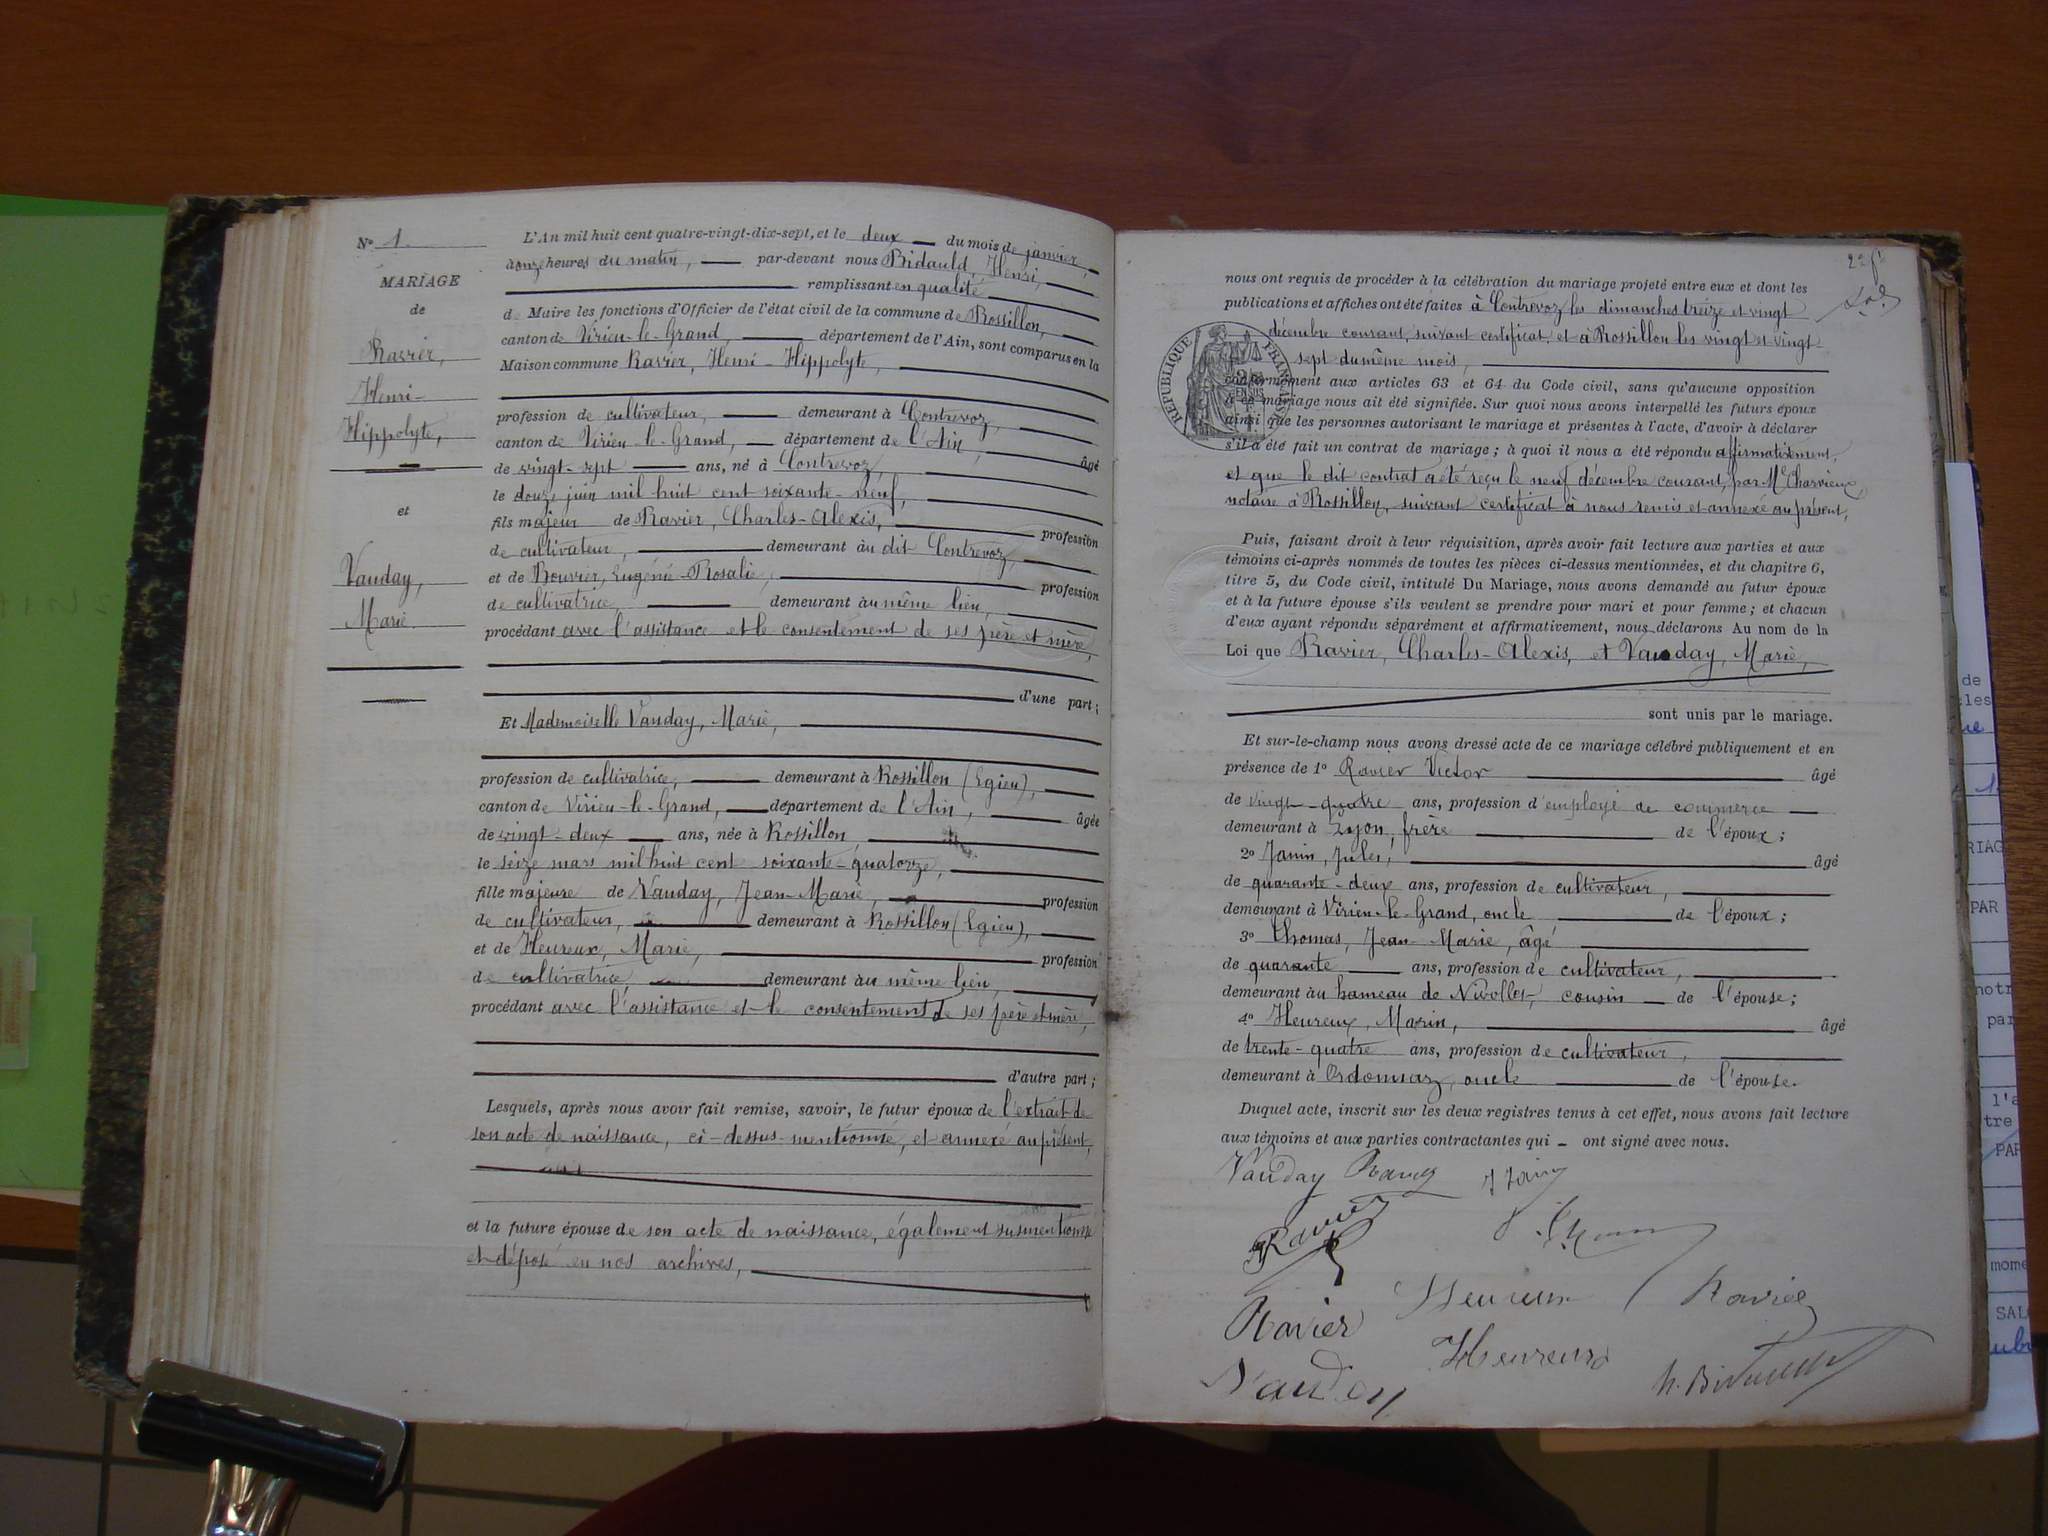 N° 1.
MARIAGE
de
Ravier,
Henri-
Hippolyte,
et
Vauday,
Marie.
L'An mil huit cent quatre-vingt-dix-sept, et le deux du mois de janvier,
onze heures du matin, par-devant nous Bidauld, Henri,
remplissant en qualité
de Maire les fonctions d'Officier de l'état civil de la commune de Rossillon,
canton de Virieu-le-Grand, département de l'Ain, sont comparus en la
Maison commune Ravier, Henri-Hippolyte,
profession de cultivateur, demeurant à Contrevoz,
canton de Virieu-le-Grand, département de l'Ain, âgé
de vingt-sept ans, né à Contrevoz,
le douze juin mil huit cent soixante-neuf,
fils majeur de Ravier, Charles-Alexis, profession
de cultivateur, demeurant au dit Contrevoz,
et de Bouvier, Eugénie-Rosalie, profession
de cultivatrice, demeurant au même lieu,
procédant avec l'assistance et le consentement de ses père et mère,
d'une part;
Et Mademoiselle Vauday, Marie,
profession de cultivatrice, demeurant à Rossillon (Egieu),
canton de Virieu-le-Grand, département de l'Ain, âgée
de vingt-deux ans, née à Rossillon
le seize mars mil huit cent soixante-quatorze,
fille majeure de Vauday, Jean-Marie, profession
de cultivateur, demeurant à Rossillon (Egieu),
et de Heureux, Marie, profession
de cultivatrice, demeurant au même lieu,
procédant avec l'assistance et le consentement de ses père et mère,
d'autre part;
Lesquels, après nous avoir fait remise, savoir, le futur époux de l'extrait de
son acte de naissance, ci-dessus mentionné, et annexé au présent,
et la future épouse de son acte de naissance, également susmentionné
et déposé en nos archives,
nous ont requis de procéder à la célébration du mariage projeté entre eux et dont les
publications et affiches ont été faites à Contrevoz les dimanches treize et vingt
décembre courant, suivant certificat, et à Rossillon les vingt et vingt-
sept du même mois,
RÉPUBLIQUE FRANÇAISE
conformément aux articles 63 et 64 du Code civil, sans qu'aucune opposition
à ce mariage nous ait été signifiée. Sur quoi nous avons interpellé les futurs époux
ainsi que les personnes autorisant le mariage et présentes à l'acte, d'avoir à déclarer
s'il a été fait un contrat de mariage; à quoi il nous a été répondu affirmativement,
et que le dit contrat a été reçu le neuf décembre courant, par Me Charvieux,
notaire à Rossillon, suivant certificat à nous remis et annexé au présent,
Puis, faisant droit à leur réquisition, après avoir fait lecture aux parties et aux
témoins ci-après nommés de toutes les pièces ci-dessus mentionnées, et du chapitre 6,
titre 5, du Code civil, intitulé Du Mariage, nous avons demandé au futur époux
et à la future épouse s'ils veulent se prendre pour mari et pour femme; et chacun
d'eux ayant répondu séparément et affirmativement, nous déclarons Au nom de la
Loi que Ravier, Charles-Alexis, et Vauday, Marie,
sont unis par le mariage.
Et sur-le-champ nous avons dressé acte de ce mariage célébré publiquement et en
présence de 1° Ravier Victor âgé
de vingt-quatre ans, profession d'employé de commerce
demeurant à Lyon, frère de l'époux;
2° Janin, Jules, âgé
de quarante-deux ans, profession de cultivateur,
demeurant à Virieu-le-Grand, oncle de l'époux;
3° Thomas, Jean-Marie, âgé
de quarante ans, profession de cultivateur,
demeurant au hameau de Nivollet, cousin de l'épouse;
4° Heureux, Marin, âgé
de trente-quatre ans, profession de cultivateur,
demeurant à Ordonnaz, oncle de l'épouse.
Duquel acte, inscrit sur les deux registres tenus à cet effet, nous avons fait lecture
aux témoins et aux parties contractantes qui ont signé avec nous.
Vauday Ravier J Janin
Ravier
Heureux Ravier
Ravier
Heureux
Vauday H. Bidauld